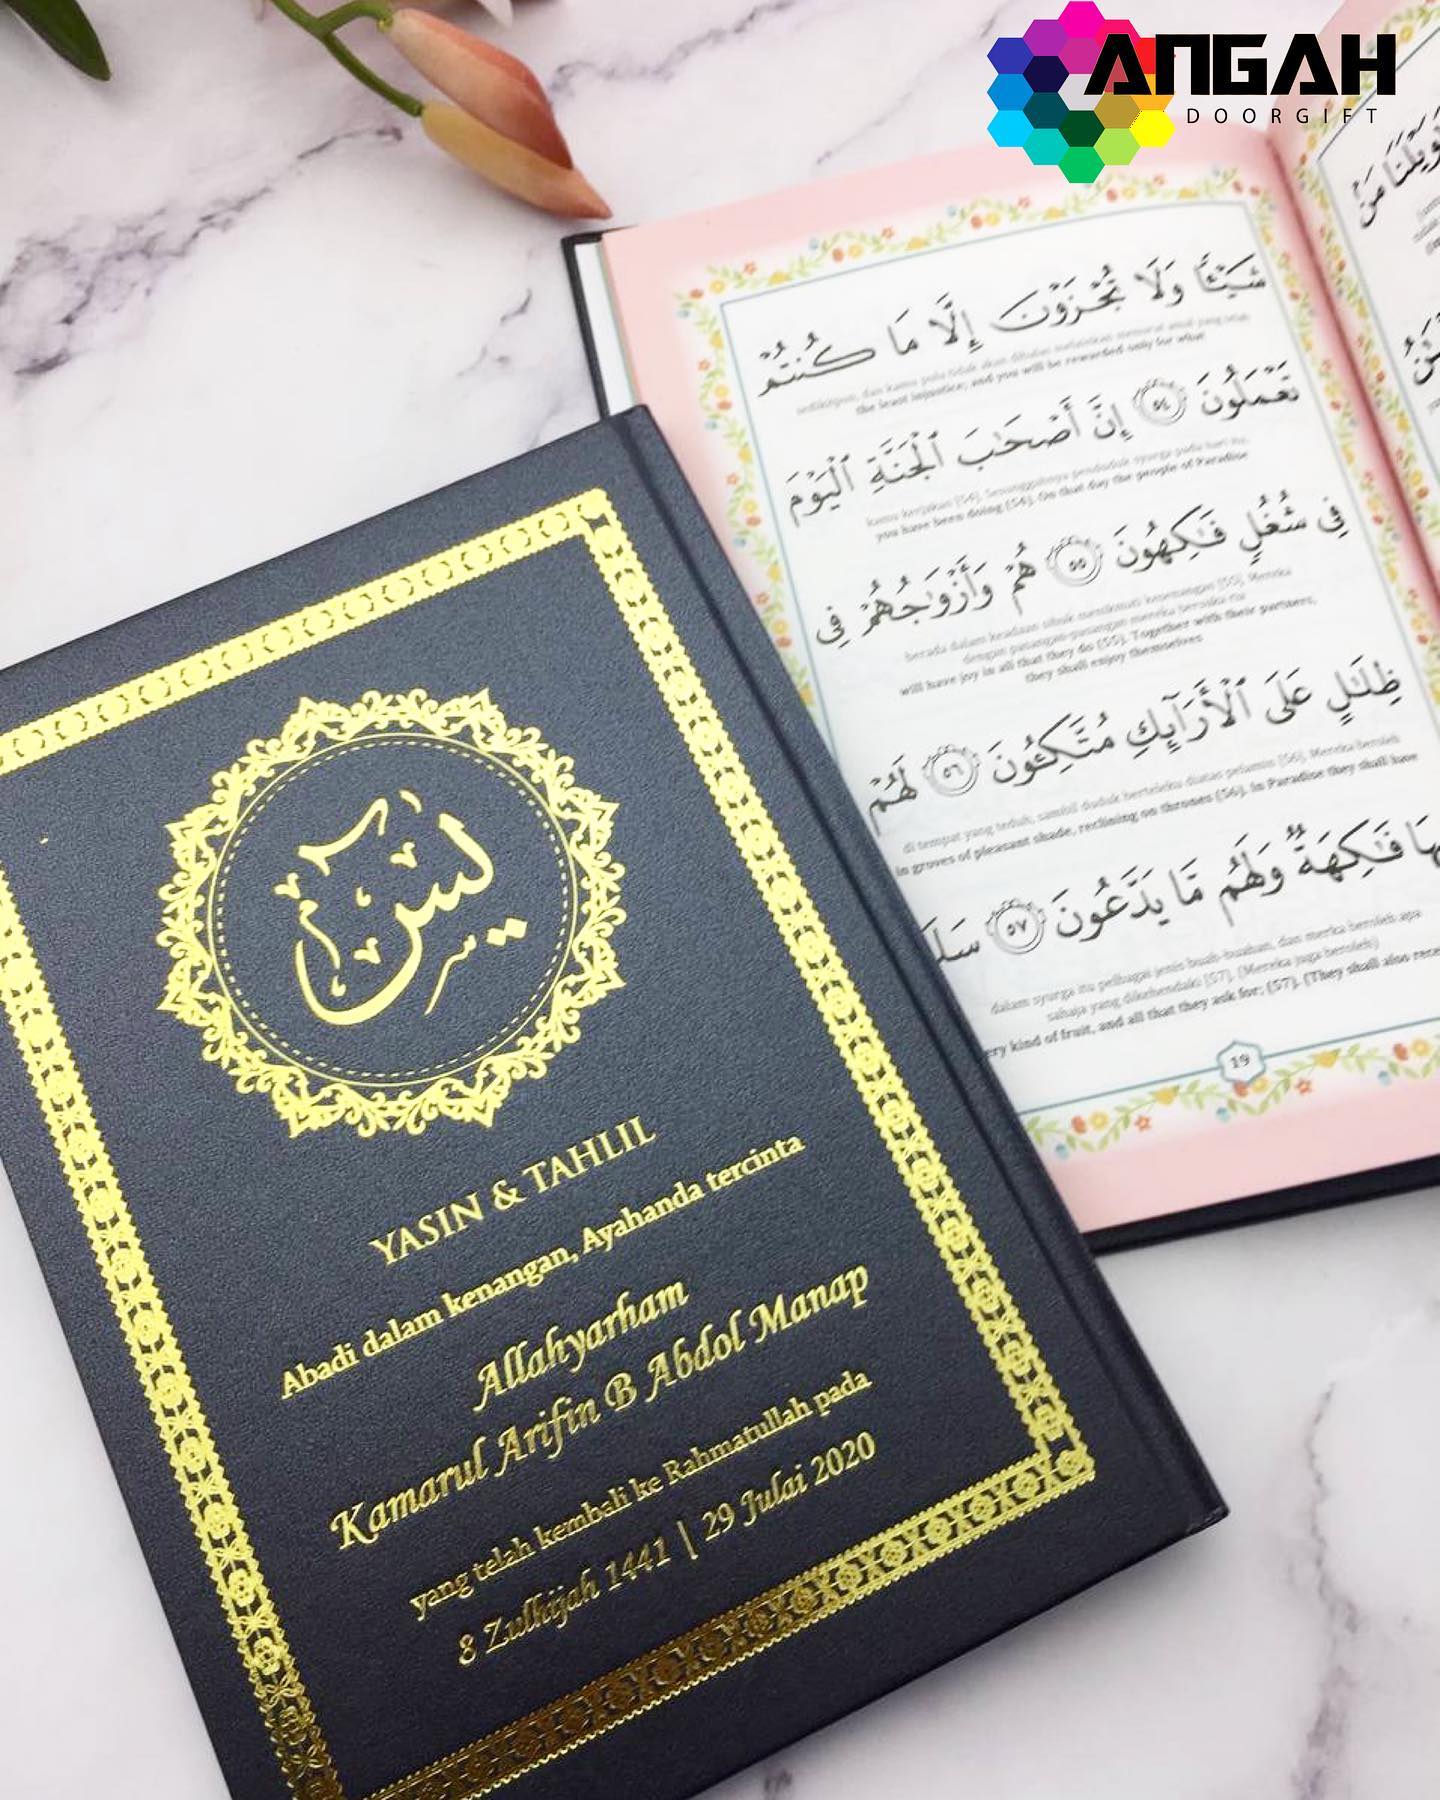 ANGAH
DOORGIFT
يس
YASIN & TAHLIL
Abadi dalam kenangan, Ayahanda tercinta
Allahyarham
Kamarul Arifin B Abdol Manap
yang telah kembali ke Rahmatullah pada
8 Zulhijah 1441 | 29 Julai 2020
شَيْـًٔا وَلَا تُجْزَوْنَ إِلَّا مَا كُنتُمْ
sedikitpun, dan kamu pula tidak akan dibalas melainkan menurut amal yang telah
the least injustice; and you will be rewarded only for what
تَعْمَلُونَ ٥٤ إِنَّ أَصْحَٰبَ ٱلْجَنَّةِ ٱلْيَوْمَ
kamu kerjakan [54]. Sesungguhnya penduduk syurga pada hari itu,
you have been doing (54). On that day the people of Paradise
فِى شُغُلٍ فَٰكِهُونَ ٥٥ هُمْ وَأَزْوَٰجُهُمْ فِى
berada dalam keadaan sibuk menikmati kesenangan [55]. Mereka
dengan pasangan-pasangan mereka bersuka ria
will have joy in all that they do (55). Together with their partners,
they shall enjoy themselves
ظِلَٰلٍ عَلَى ٱلْأَرَآئِكِ مُتَّكِـُٔونَ ٥٦ لَهُمْ
di tempat yang teduh, sambil duduk berteleku diatas pelamin [56]. Mereka beroleh
in groves of pleasant shade, reclining on thrones (56). In Paradise they shall have
فَٰكِهَةٌ وَلَهُم مَّا يَدَّعُونَ ٥٧
dalam syurga itu pelbagai jenis buah-buahan, dan merka beroleh apa
sahaja yang dikehendaki [57]. (Mereka juga beroleh)
kind of fruit, and all that they ask for; (57). (They shall also
19